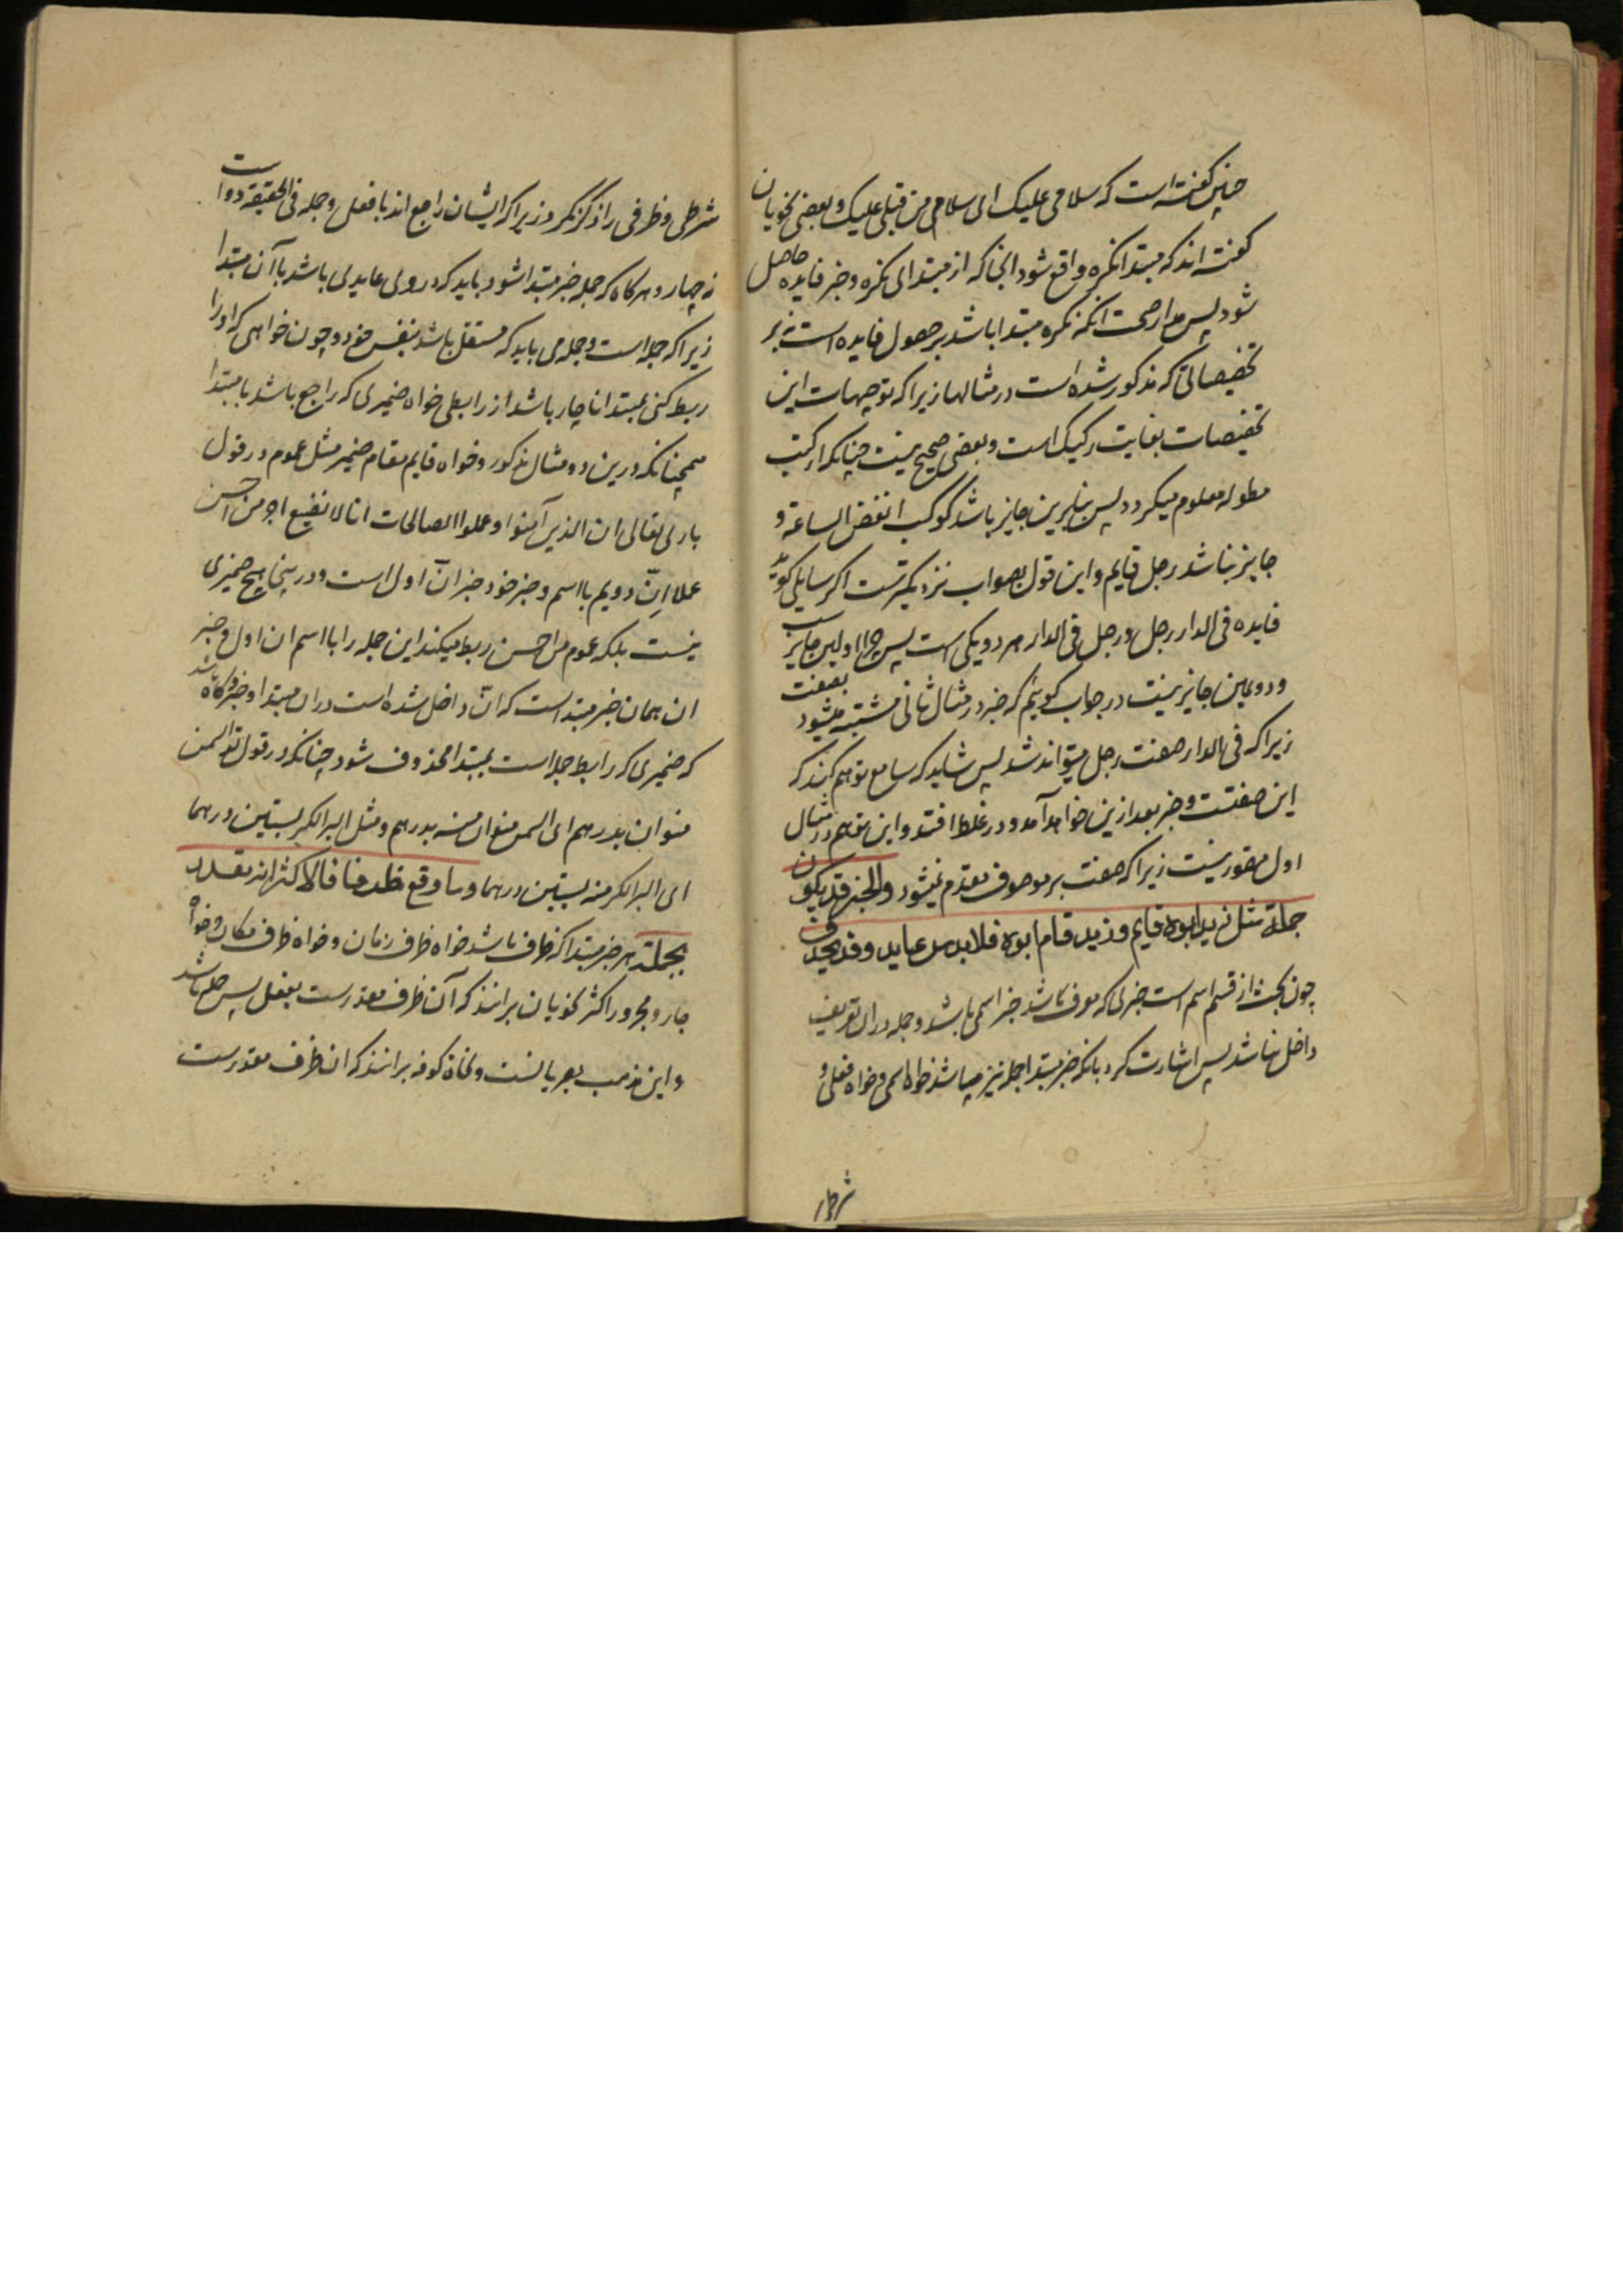 چنین گفته است که سلامی علیک ای سلامی من قبلی علیک و بعضی نحویان
گفته اند که مبتدا نکره واقع شود آنجا که از مبتدای نکره و خبر فایده حاصل
شود پس مدار صحت آنکه نکره مبتدا باشد بر حصول فایده است نه بر
تخصیصاتی که مذکور شده است در مثالها زیرا که توجیهات این
تخصیصات بغایت رکیک است و بعضی صحیح نیست چنانکه از کتب
مطوله معلوم میگردد پس بنابرین جایز باشد کوکب انقض الساعة و
جایز نباشد رجل قایم و این قول بصواب نزدیکترست اگر سایلی گوید
فایده فی الدار رجل و رجل فی الدار هر دو یکی است پس چرا اولین جایزست
و دویمین جایز نیست در جواب گوییم که خبر در مثال ثانی مشتبه میشود بصفت
زیرا که فی الدار صفت رجل میتواند شد پس شاید که سامع توهم کند که
این صفتست و خبر بعد ازین خواهد آمد و در غلط افتد و این توهم در مثال
اول متصور نیست زیرا که صفت بر موصوف مقدم نمیشود والخبر قد یکون
جملة مثل زید ابوه قایم و زید قام ابوه فلابد من عاید وقد یحذف
چون بحث از قسم اسم است خبری که معرف باشد خبر اسمی باشد و جمله در آن تعریف
داخل نباشد پس اشارت کرد بانکه خبر مبتدا جمله نیز میباشد خواه اسمی و خواه فعلی و
شرطی
شرطی و ظرفی را ذکر نکرد زیرا که ایشان راجع اند با فعل و جمله فی الحقیقة دو است
نه چهار و هرگاه که جمله خبر مبتدا شود باید که در وی عایدی باشد با آن مبتدا
زیرا که جمله است و جمله می باید که مستقل باشد بنفس خود و چون خواهی که او را
ربط کنی بمبتدا ناچار باشد از رابطی خواه ضمیری که راجع باشد با مبتدا
همچنانکه درین دو مثال مذکور و خواه قایم مقام ضمیر مثل عموم در قول
باری تعالی ان الذین آمنوا و عملوا الصالحات انا لا نضیع اجر من احسن
عملا انّ دویم با اسم و خبر خود خبر انّ اول است و درینجا هیچ ضمیری
نیست بلکه عموم من احسن ربط میکند این جمله را با اسم ان اول و خبر
ان همان خبر مبتداست که انّ داخل شده است در آن مبتدا و خبر و گاه باشد
که ضمیری که رابط جمله است بمبتدا محذوف شود چنانکه در قول تو السمن
منوان بدرهم ای السمن منوان منه بدرهم و مثل البر الکر بستین درهما
ای البر الکر منه بستین درهما وما وقع ظرفا فالاکثر انه مقدر
بجملة هر خبر مبتدا که ظرف باشد خواه ظرف زمان و خواه ظرف مکان و خواه
جار و مجرور اکثر نحویان برانند که آن ظرف مقدرست بفعل پس جمله باشد
و این مذهب بصریانست و نحاة کوفه برانند که ان ظرف مقدرست